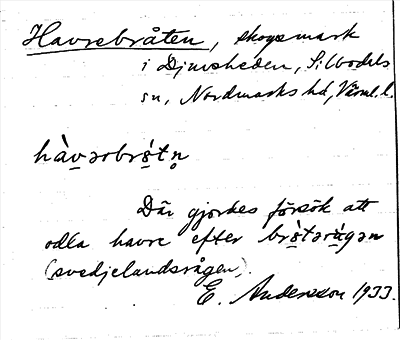 Havrebråten, skogsmark
i Djuvsheden, S. Wodals
sn, Nordmarks hd, Värml. l.
hàv̠ərbrs̠̀tn̥
Där gjordes försök att
odla havre efter brs̠̀tərùgən
(svedjelandsrågen).
E. Andersson 1933.